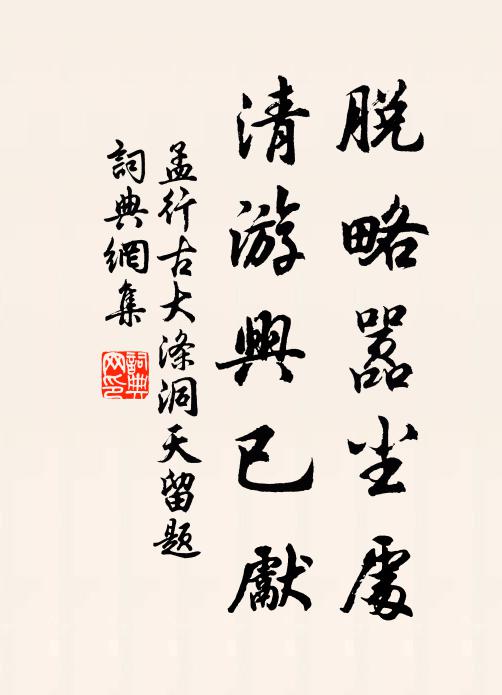 脱略嚣尘處
清游興已獻
孟行古大涤洞天留题
詞典網集
詞典網印